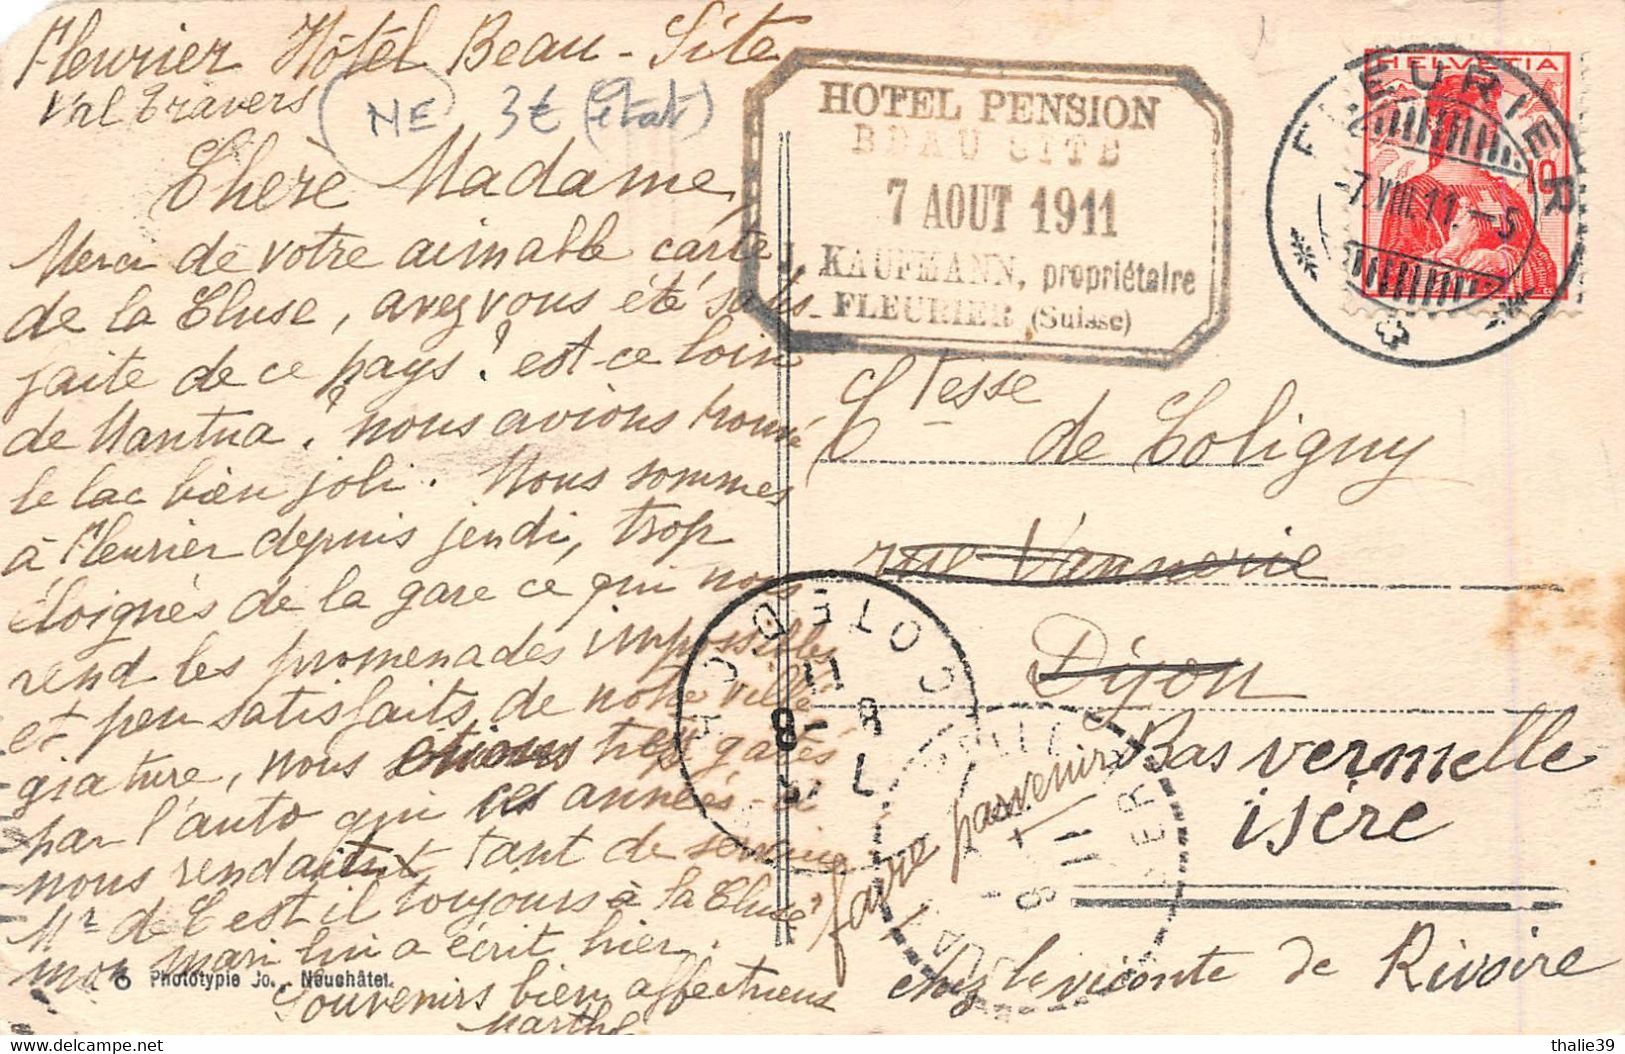 Fleurier Hôtel Beau-Site
Val Travers
NE 3€ (état)
Chère Madame,
Merci de votre aimable carte
de la Cluse, avez vous été satis-
faite de ce pays? est-ce loin
de Nantua? nous avions trouvé
le lac bien joli. Nous sommes
à Fleurier depuis jeudi, trop
éloignés de la gare ce qui nous
rend les promenades impossibles
et peu satisfaits de notre villé
giature, nous étions très gatés
par l'auto qui ces années-ci
nous rendait tant de service
Mr de C est il toujours à la Cluse?
mon mari lui a écrit hier.
Souvenirs bien affectueux
Marthe
6 Phototypie Jo., Neuchâtel.
HOTEL PENSION
BEAU SITE
7 AOUT 1911
KAUFMANN, propriétaire
FLEURIER (Suisse)
HELVETIA
10
FLEURIER
-7.VIII.11.-5
Ctesse
de Coligny
rue Vannerie
Dijon
Bas vermelle
isère
faire parvenir
chez le vicomte de Rivoire
COTE D'OR
7 - 8
8
11
8
11
thalie39